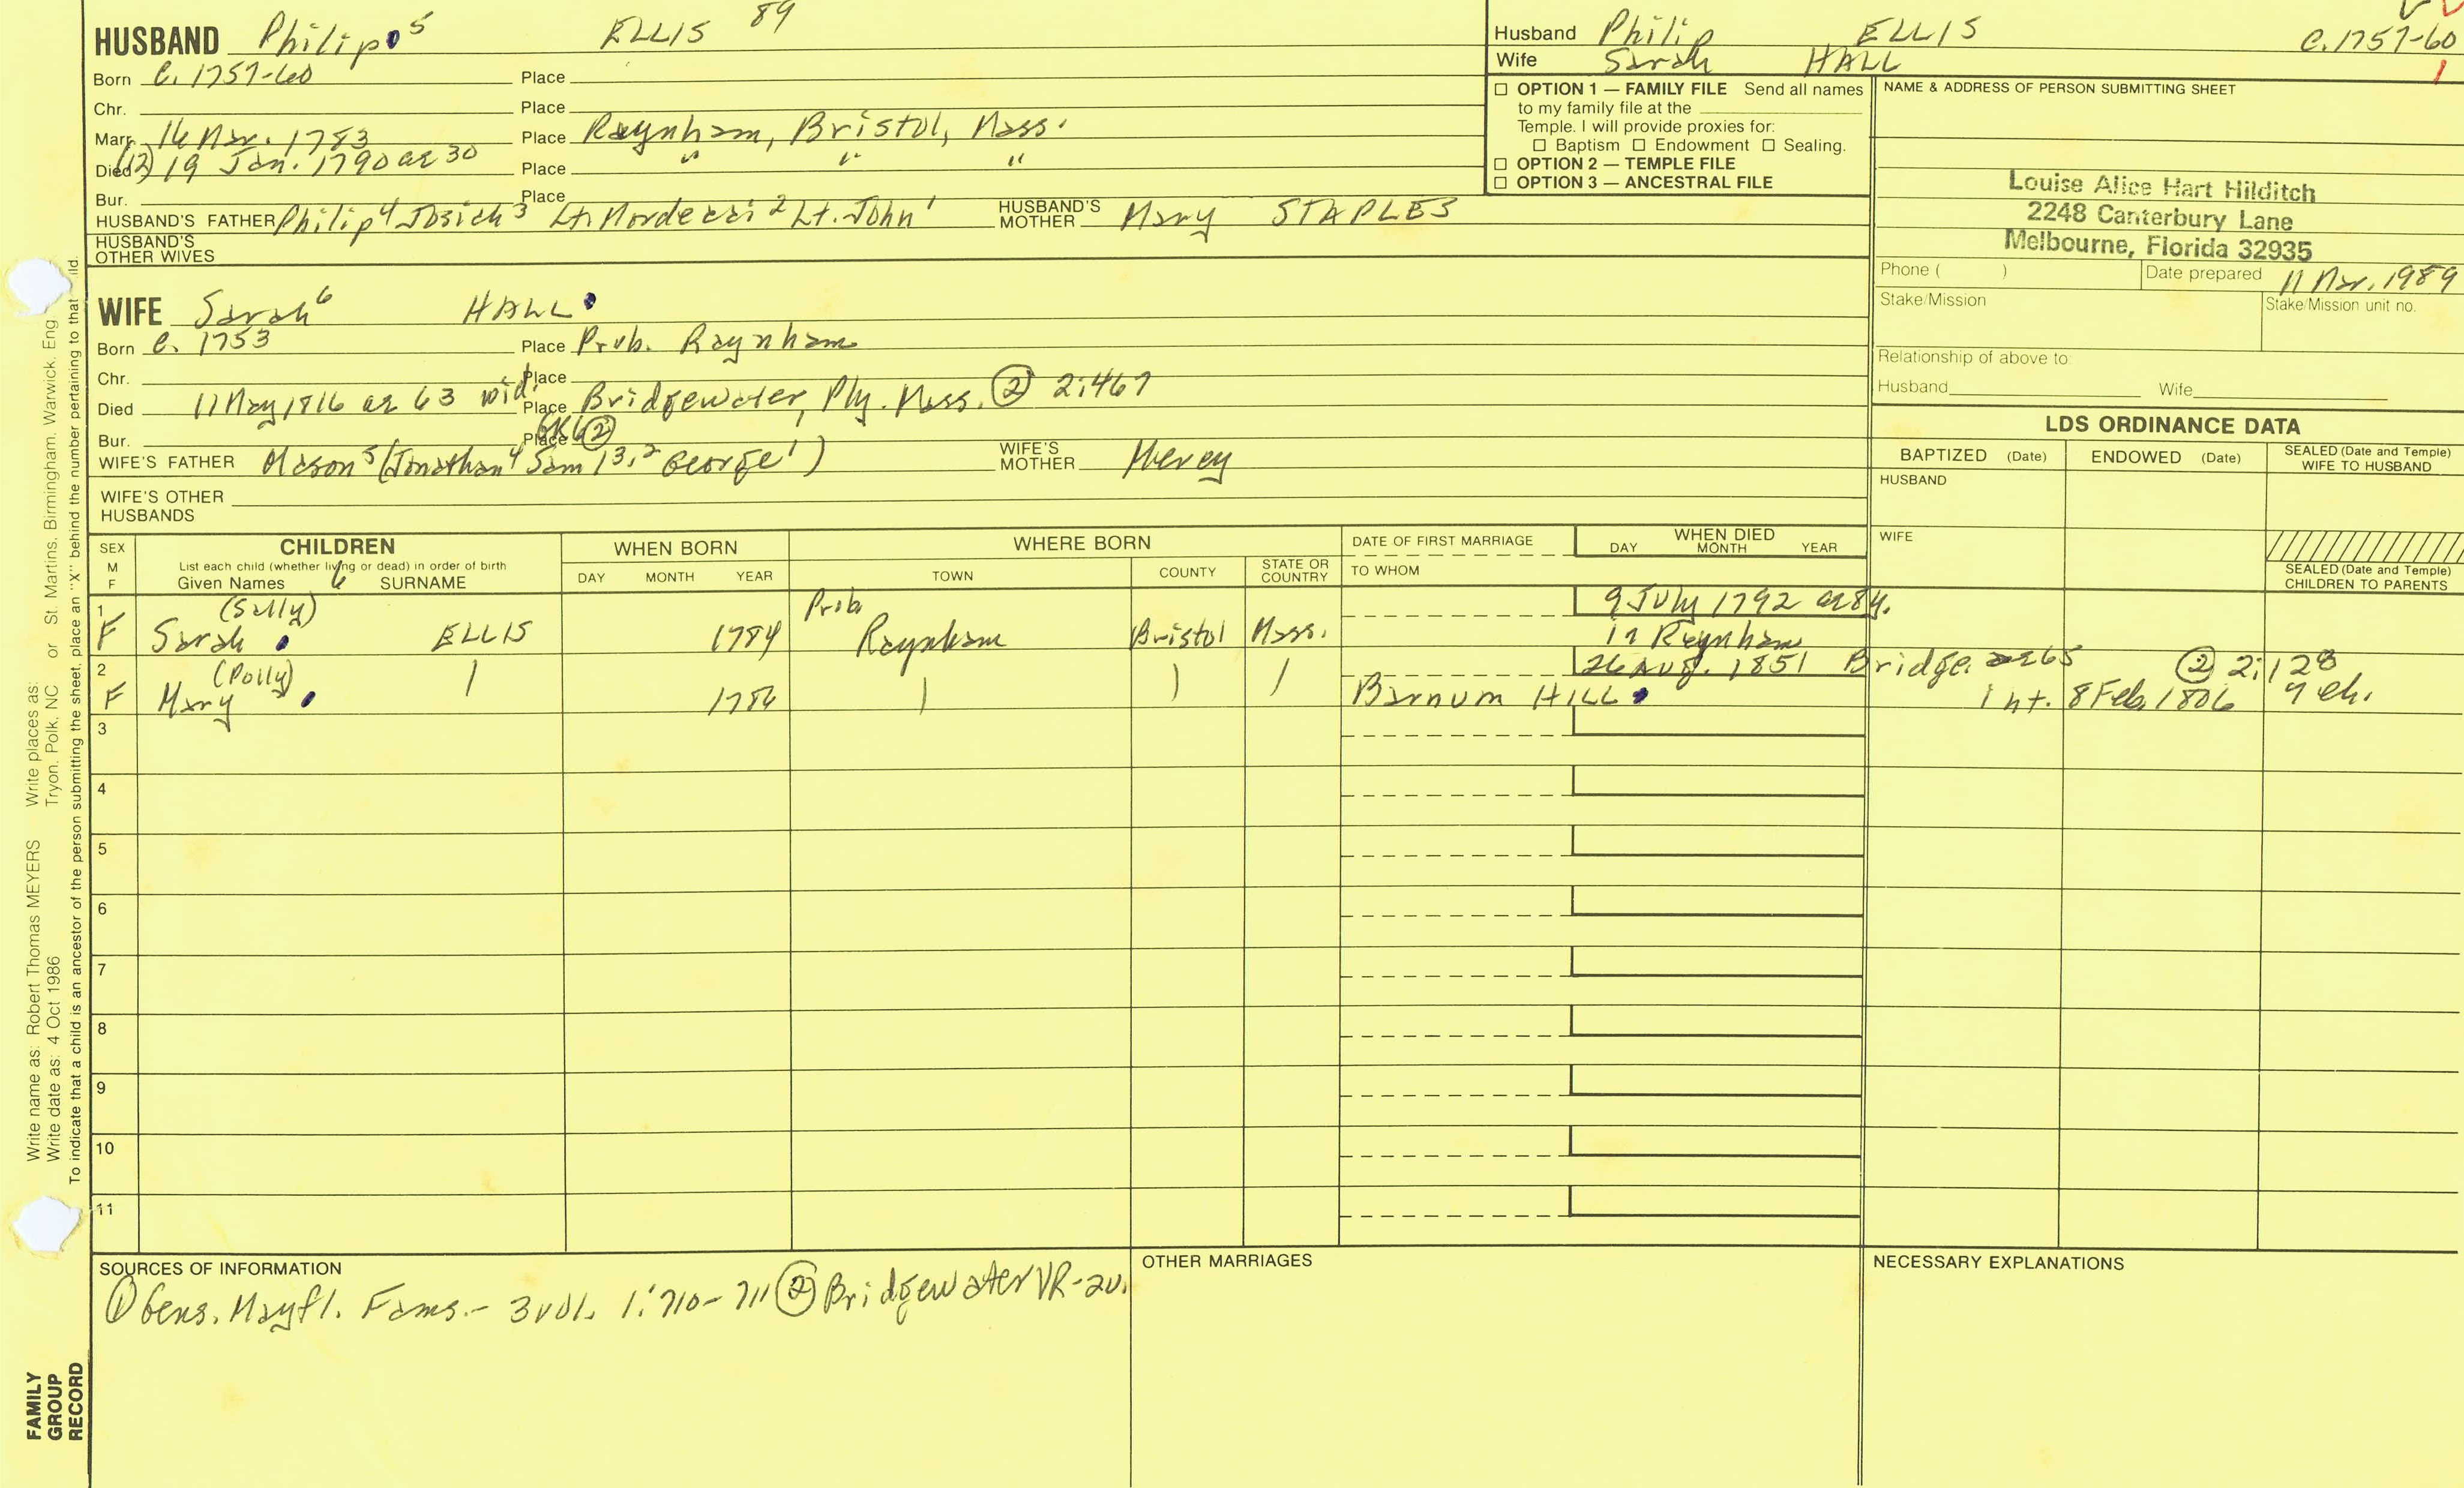 HUSBAND Philip 5 ELLIS 89
Born c. 1757-60 Place
Chr. Place
Marr. 16 Mar. 1783 Place Raynham, Bristol, Mass.
Died (12) 19 Jan. 1790 ae 30 Place " " "
Bur. Place
HUSBAND'S FATHER Philip 4 Josiah 3 Lt. Mordecai 2 Lt. John 1 HUSBAND'S MOTHER Mary STAPLES
HUSBAND'S OTHER WIVES
WIFE Sarah 6 HALL
Born c. 1753 Place Prob. Raynham
Chr. Place
Died 11 May 1816 ae 63 wid. Place Bridgewater, Ply. Mass. ② 2:467
Bur. Place ②
WIFE'S FATHER Mason 5 (Jonathan 4 Sam'l 3,2 George 1) WIFE'S MOTHER Mercy
WIFE'S OTHER HUSBANDS
Husband Philip ELLIS c. 1757-60
Wife Sarah HALL 1
☐ OPTION 1 — FAMILY FILE Send all names
to my family file at the
Temple. I will provide proxies for:
☐ Baptism ☐ Endowment ☐ Sealing.
☐ OPTION 2 — TEMPLE FILE
☐ OPTION 3 — ANCESTRAL FILE
NAME & ADDRESS OF PERSON SUBMITTING SHEET
Louise Alice Hart Hilditch
2248 Canterbury Lane
Melbourne, Florida 32935
Phone ( ) Date prepared 11 Mar. 1989
Stake/Mission Stake/Mission unit no.
Relationship of above to
Husband Wife
LDS ORDINANCE DATA
BAPTIZED (Date) ENDOWED (Date) SEALED (Date and Temple) WIFE TO HUSBAND
HUSBAND
WIFE
SEALED (Date and Temple)
CHILDREN TO PARENTS
SEX M F
CHILDREN
List each child (whether living or dead) in order of birth
Given Names SURNAME
WHEN BORN
DAY MONTH YEAR
WHERE BORN
TOWN COUNTY STATE OR COUNTRY
DATE OF FIRST MARRIAGE
TO WHOM
WHEN DIED
DAY MONTH YEAR
1 (Sally) Prob 9 July 1792 ae 8 y.
F Sarah ELLIS 1784 Raynham Bristol Mass. in Raynham
2 (Polly) 26 Aug. 1851 Bridge. ae 65 ② 2:128
F Mary 1786 Barnum HILL Int. 8 Feb. 1806 9 ch.
3
4
5
6
7
8
9
10
11
SOURCES OF INFORMATION
① Gens. Mayfl. Fams.- 3 vol. 1:710-711 ② Bridgewater VR-2v.
OTHER MARRIAGES
NECESSARY EXPLANATIONS
Write name as: Robert Thomas MEYERS Write places as: St. Martins, Birmingham, Warwick, Eng.
Write date as: 4 Oct 1986 Tryon, Polk, NC or
To indicate that a child is an ancestor of the person submitting the sheet, place an "X" behind the number pertaining to that ild.
FAMILY
GROUP
RECORD